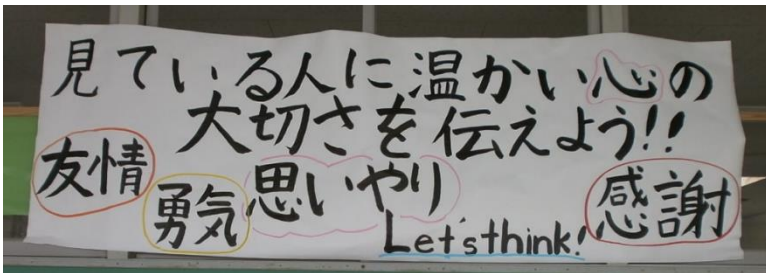 見ている人に温かい心の
大切さを伝えよう!!
友情
勇気
思いやり
感謝
Let'sthink!